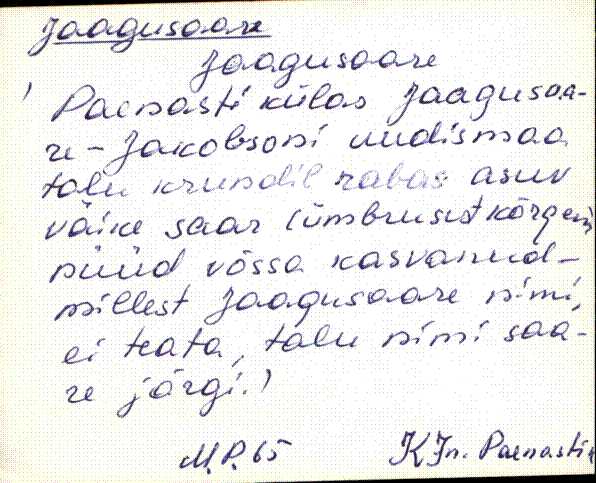 Jaagusaare
Jaagusaare
Paenasti külas Jaagusaa-
re - Jakobsoni uudismaa
talu krundil rabas asuv
väike saar (ümbrusest kõrgem
nüüd võssa kasvanud -
millest Jaagusaare nimi,
ei teata, talu nimi saa-
re järgi.)
M.P. 65 KJn. Paenasti k